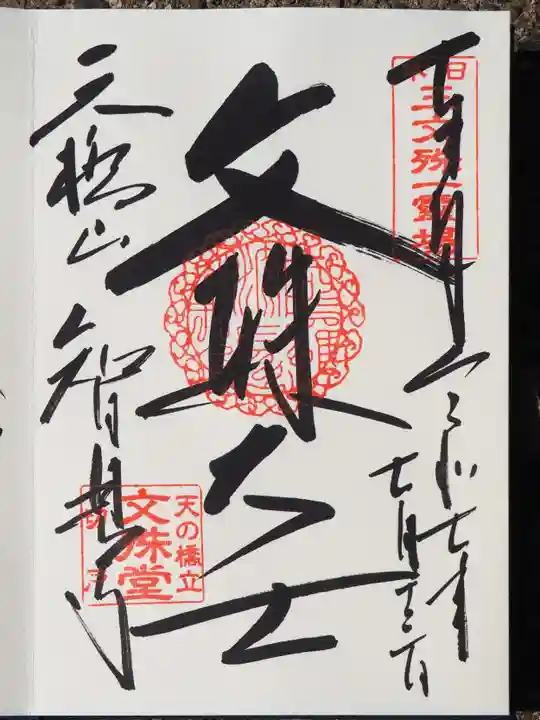 奉拝
令和七年
七月十三日
日本三文殊一霊場
文殊大士
天橋山
智恩寺
天の橋立
文殊堂